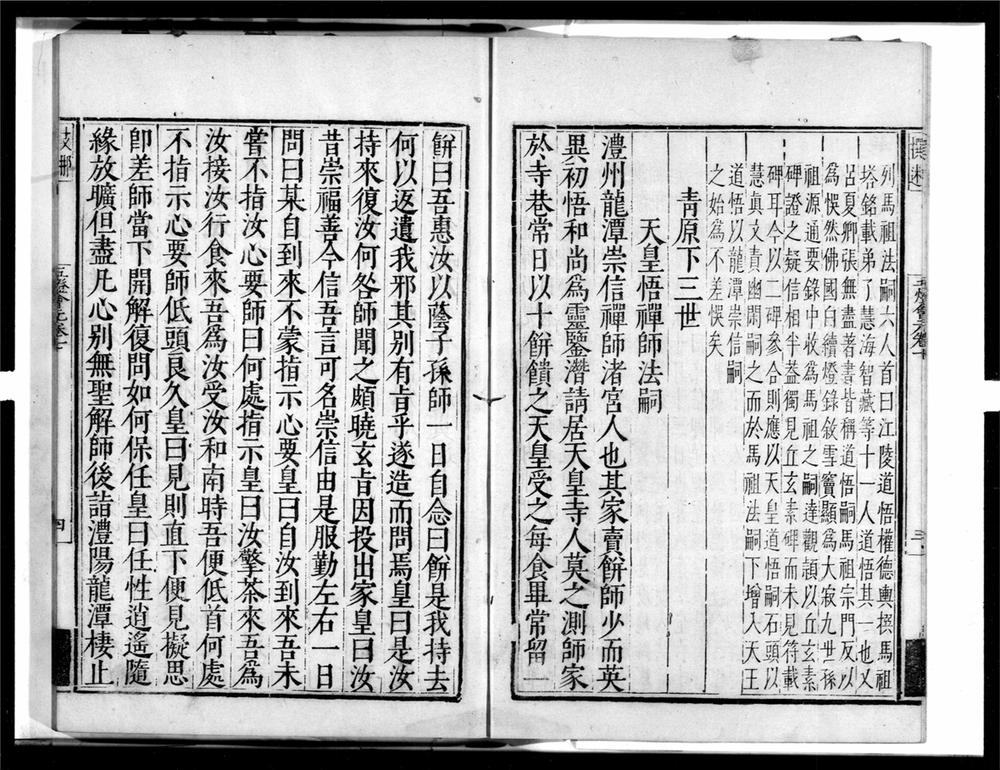 列馬祖法嗣六人首曰江陵道悟權德輿撰馬祖
塔銘載弟子慧海智藏等十一人道悟其一也又
呂夏卿張無盡著書皆稱道悟嗣馬祖宗門反以
為悞然佛國白續燈錄敘雪竇顯為大寂九世孫
祖源通要錄中收為馬祖之嗣達觀頴以丘玄素
碑證之疑信相半葢獨見丘玄素碑而未見符載
碑耳今以二碑參合則應以天皇道悟嗣石頭以
慧真文賁幽閒嗣之而於馬祖法嗣下增入天王
道悟以龍潭崇信嗣
之始為不差悞矣
青原下三世
天皇悟禪師法嗣
澧州龍潭崇信禪師渚宮人也其家賣餅師少而英
異初悟和尚爲靈鑒潛請居天皇寺人莫之測師家
於寺巷常日以十餅饋之天皇受之每食畢常留一
餅曰吾惠汝以蔭子孫師一日自念曰餅是我持去
何以返遺我邪其别有旨乎遂造而問焉皇曰是汝
持來復汝何咎師聞之頗曉玄旨因投出家皇曰汝
昔崇福善今信吾言可名崇信由是服勤左右一日
問曰某自到來不蒙指示心要皇曰自汝到來吾未
嘗不指汝心要師曰何處指示皇曰汝擎茶來吾爲
汝接汝行食來吾爲汝受汝和南時吾便低首何處
不指示心要師低頭良久皇曰見則直下便見擬思
卽差師當下開解復問如何保任皇曰任性逍遙隨
緣放曠但盡凡心别無聖解師後詣澧陽龍潭棲止